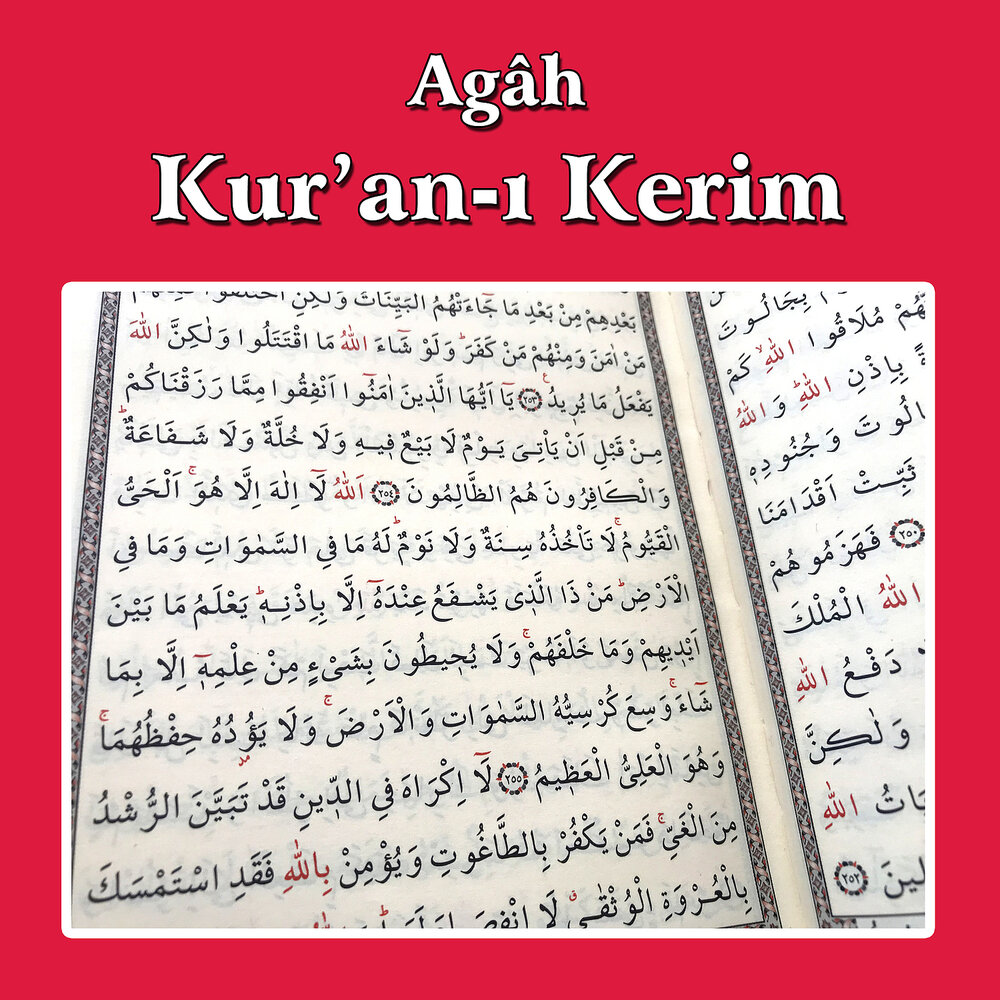 Agâh
Kur’an-ı Kerim
بَعْدِهِمْ مِنْ بَعْدِ مَا جَٓاءَتْهُمُ الْبَيِّنَاتُ وَلٰكِنِ اخْتَلَفُوا فَمِنْهُمْ
مَنْ اٰمَنَ وَمِنْهُمْ مَنْ كَفَرَۜ وَلَوْ شَٓاءَ اللّٰهُ مَا اقْتَتَلُوا وَلٰكِنَّ اللّٰهَ
يَفْعَلُ مَا يُرٖيدُ ۟ ﴿٢٥٣﴾ يَٓا اَيُّهَا الَّذٖينَ اٰمَنُٓوا اَنْفِقُوا مِمَّا رَزَقْنَاكُمْ
مِنْ قَبْلِ اَنْ يَأْتِيَ يَوْمٌ لَا بَيْعٌ فٖيهِ وَلَا خُلَّةٌ وَلَا شَفَاعَةٌۜ
وَالْكَافِرُونَ هُمُ الظَّالِمُونَ ﴿٢٥٤﴾ اَللّٰهُ لَٓا اِلٰهَ اِلَّا هُوَۚ اَلْحَيُّ
الْقَيُّومُۚ لَا تَأْخُذُهُ سِنَةٌ وَلَا نَوْمٌۜ لَهُ مَا فِي السَّمٰوَاتِ وَمَا فِي
الْاَرْضِۜ مَنْ ذَا الَّذٖي يَشْفَعُ عِنْدَهُٓ اِلَّا بِاِذْنِهٖۜ يَعْلَمُ مَا بَيْنَ
اَيْدٖيهِمْ وَمَا خَلْفَهُمْۚ وَلَا يُحٖيطُونَ بِشَيْءٍ مِنْ عِلْمِهٖٓ اِلَّا بِمَا
شَٓاءَۚ وَسِعَ كُرْسِيُّهُ السَّمٰوَاتِ وَالْاَرْضَۚ وَلَا يَؤُ۫دُهُ حِفْظُهُمَاۚ
وَهُوَ الْعَلِيُّ الْعَظٖيمُ ﴿٢٥٥﴾ لَٓا اِكْرَاهَ فِي الدّٖينِ قَدْ تَبَيَّنَ الرُّشْدُ
مِنَ الْغَيِّۚ فَمَنْ يَكْفُرْ بِالطَّاغُوتِ وَيُؤْمِنْ بِاللّٰهِ فَقَدِ اسْتَمْسَكَ
بِالْعُرْوَةِ الْوُثْقٰىۗ لَا انْفِصَامَ لَهَاۜ
بِجَالُوتَ
مُلَاقُوا اللّٰهِۙ كَمْ
بِاِذْنِ اللّٰهِۜ وَاللّٰهُ
وَجُنُودِهٖ
ثَبِّتْ اَقْدَامَنَا
﴿٢٥٠﴾ فَهَزَمُوهُمْ
اللّٰهُ الْمُلْكَ
دَفْعُ اللّٰهِ
وَلٰكِنَّ
اللّٰهِ
﴿٢٥٢﴾